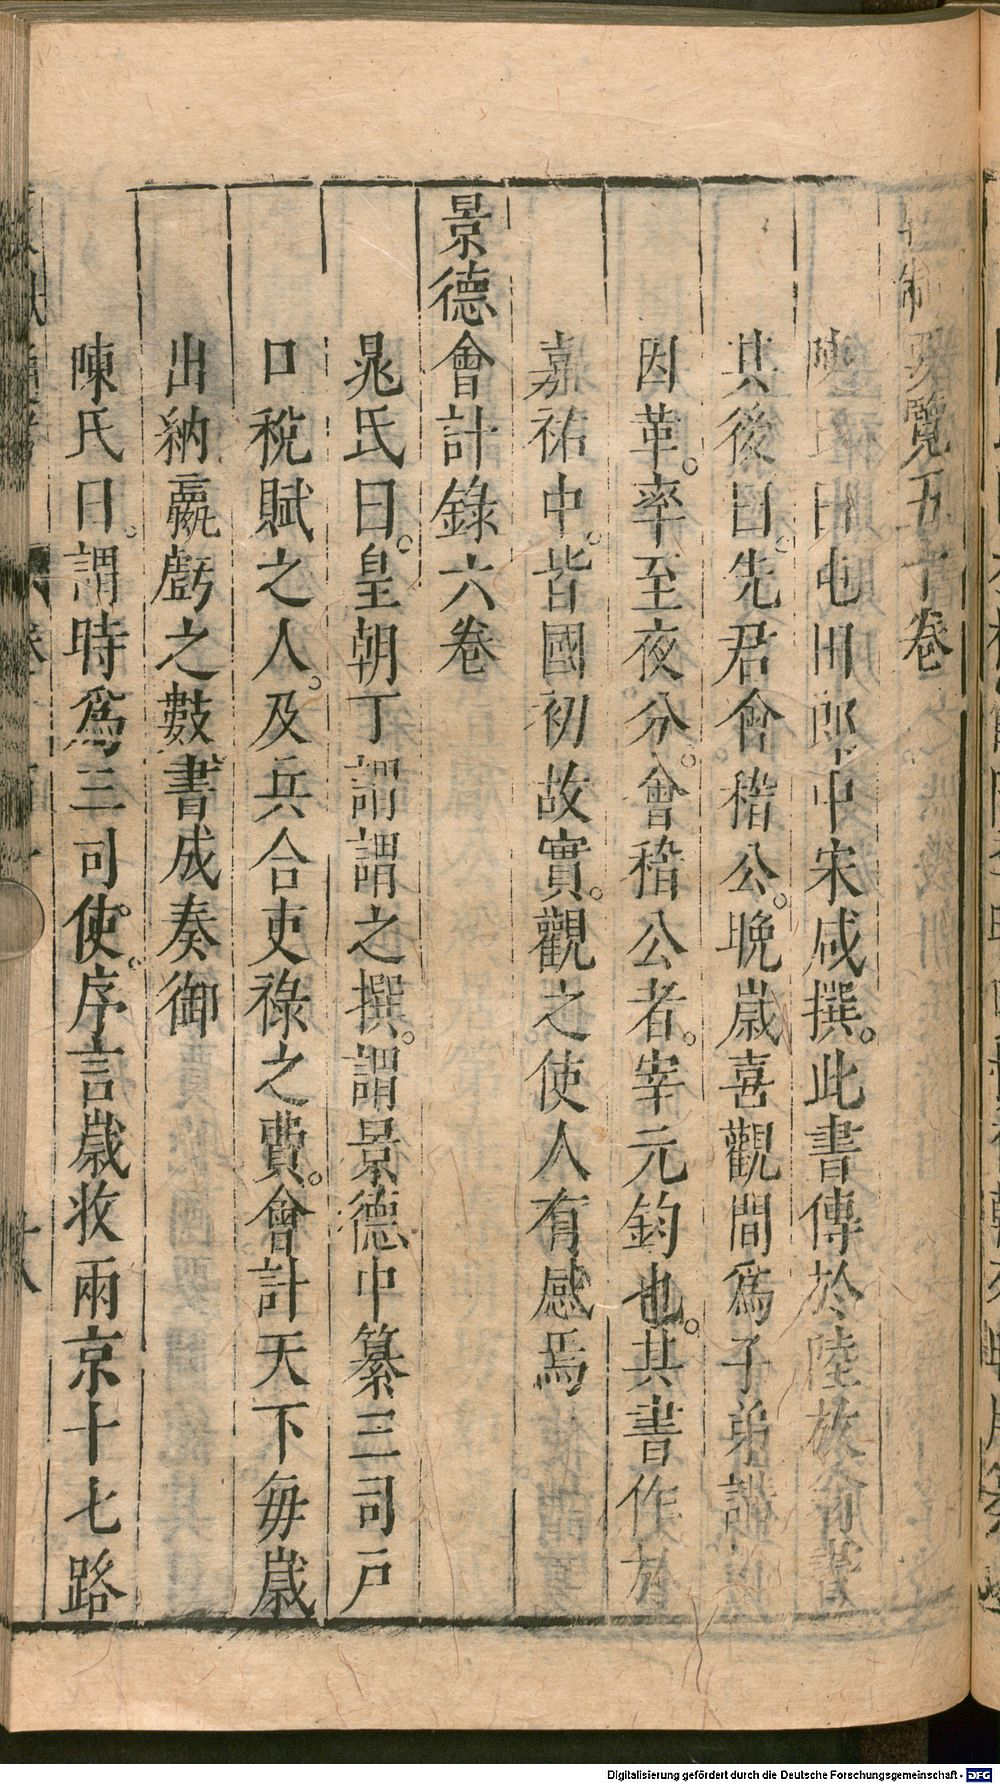 覽五十卷
陳氏曰屯田郎中宋咸撰。此書傳於陸放翁書
其後曰。先君會稽公。晚歲喜觀間為子弟講
因革。率至夜分。會稽公者。宰元鈞也。其書作於
嘉祐中。皆國初故實。觀之使人有感焉
景德會計錄六卷
晁氏曰。皇朝丁謂謂之撰。謂景德中纂三司戶
口稅賦之人。及兵合吏祿之費。會計天下每歲
出納嬴虧之數書成奏御
陳氏曰。謂時爲三司使。序言歲收兩京十七路
Digitalisierung gefördert durch die Deutsche Forschungsgemeinschaft - DFG